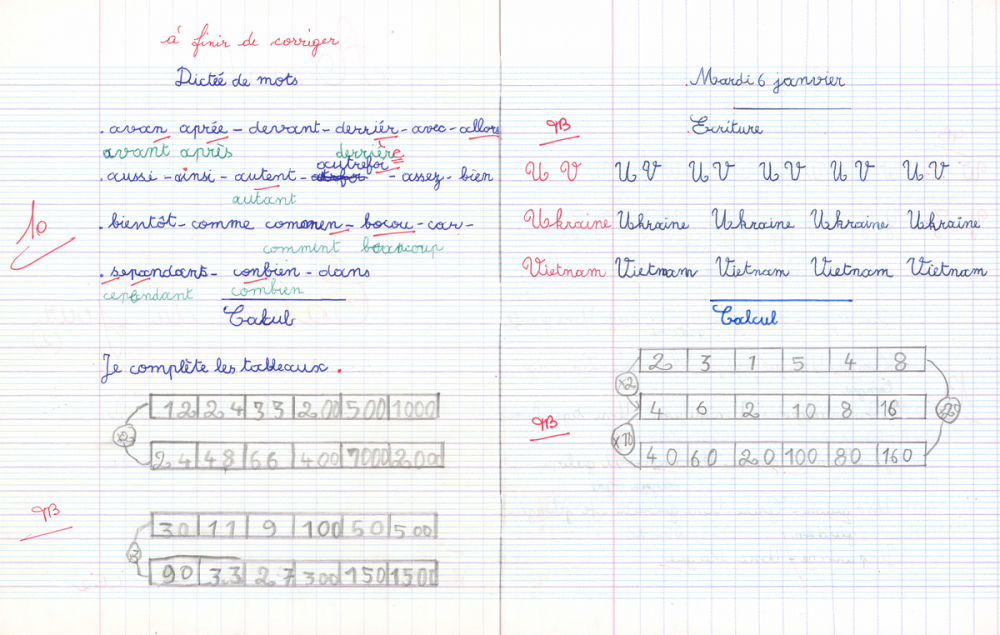 à finir de corriger
Dictée de mots
. avan aprée - devant - derriér - avec - allors
avant après derrière
autrefor
. aussi - ainsi - autent - - assez - bien
autant
10
. bientôt - comme comonen - bocou - car -
comment beaucoup
. sepandant - conbien - dans
cependant combien
Calcul
Je complète les tableaux.
12 24 33 200 500 1000
x2
24 48 66 400 7000 2000
TB
30 11 9 100 50 500
x3
90 33 27 300 150 1500
Mardi 6 janvier
TB
Ecriture
U V U V U V U V U V U V
Ukraine Ukraine Ukraine Ukraine Ukraine
Vietnam Vietnam Vietnam Vietnam Vietnam
Calcul
2 3 1 5 4 8
x2
TB
4 6 2 10 8 16
x20
x10
40 60 20 100 80 160